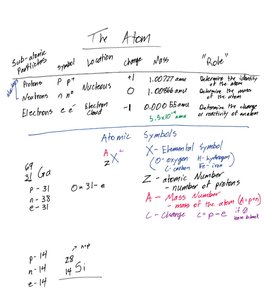 The Atom
Sub-atomic
Particles symbol Location Charge Mass "Role"
Protons P p⁺ Nucleous +1 1.00727 amu Determine the identity
of the atom
Neutrons n n⁰ 0 1.00866 amu Determine the
of the atom
Electrons e e⁻ Electron
Cloud -1 0.00055 amu Determine the charge
or reactivity of an atom
5.5x10⁻⁴ amu
Atomic Symbols
A
Z X C
X - Elemental Symbol
(O - oxygen H - hydrogen)
C - carbon Fe - iron
Z - atomic Number
- number of protons
A - Mass Number
- mass of the atom (A = p+n)
C - Charge C = p - e if 0
leave blank
69
31 Ga
p - 31
n - 38
e - 31
0 = 31 - e
p - 14
n - 14
e - 14
28 n+p
14 Si